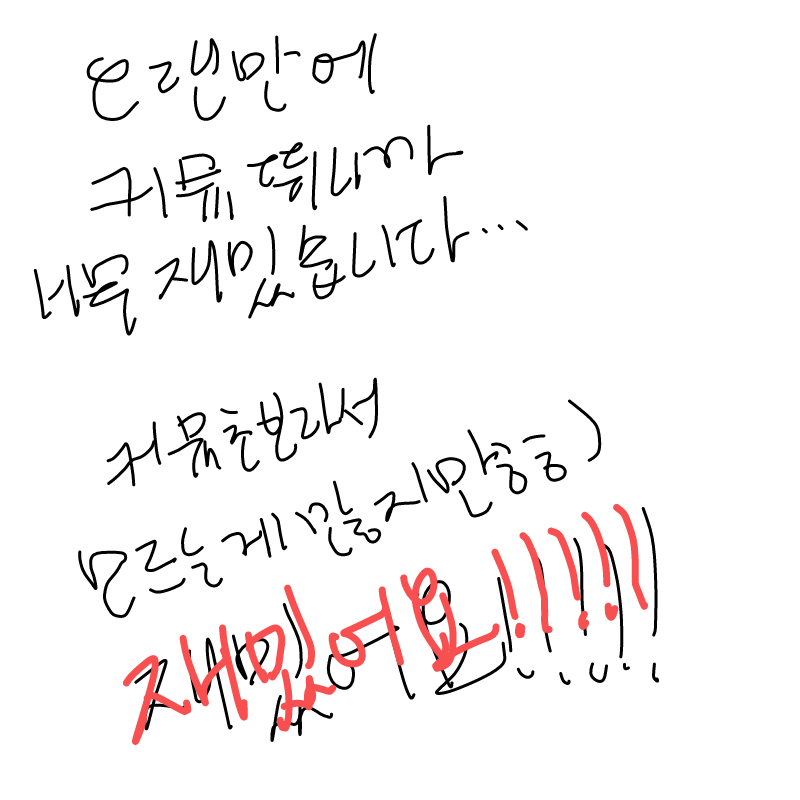 오랜만에
커뮤 뛰니까
너무 재밌습니다...
커뮤초보라서
모르는게 많지만ㅎㅎ)
재밌어요!!!!!